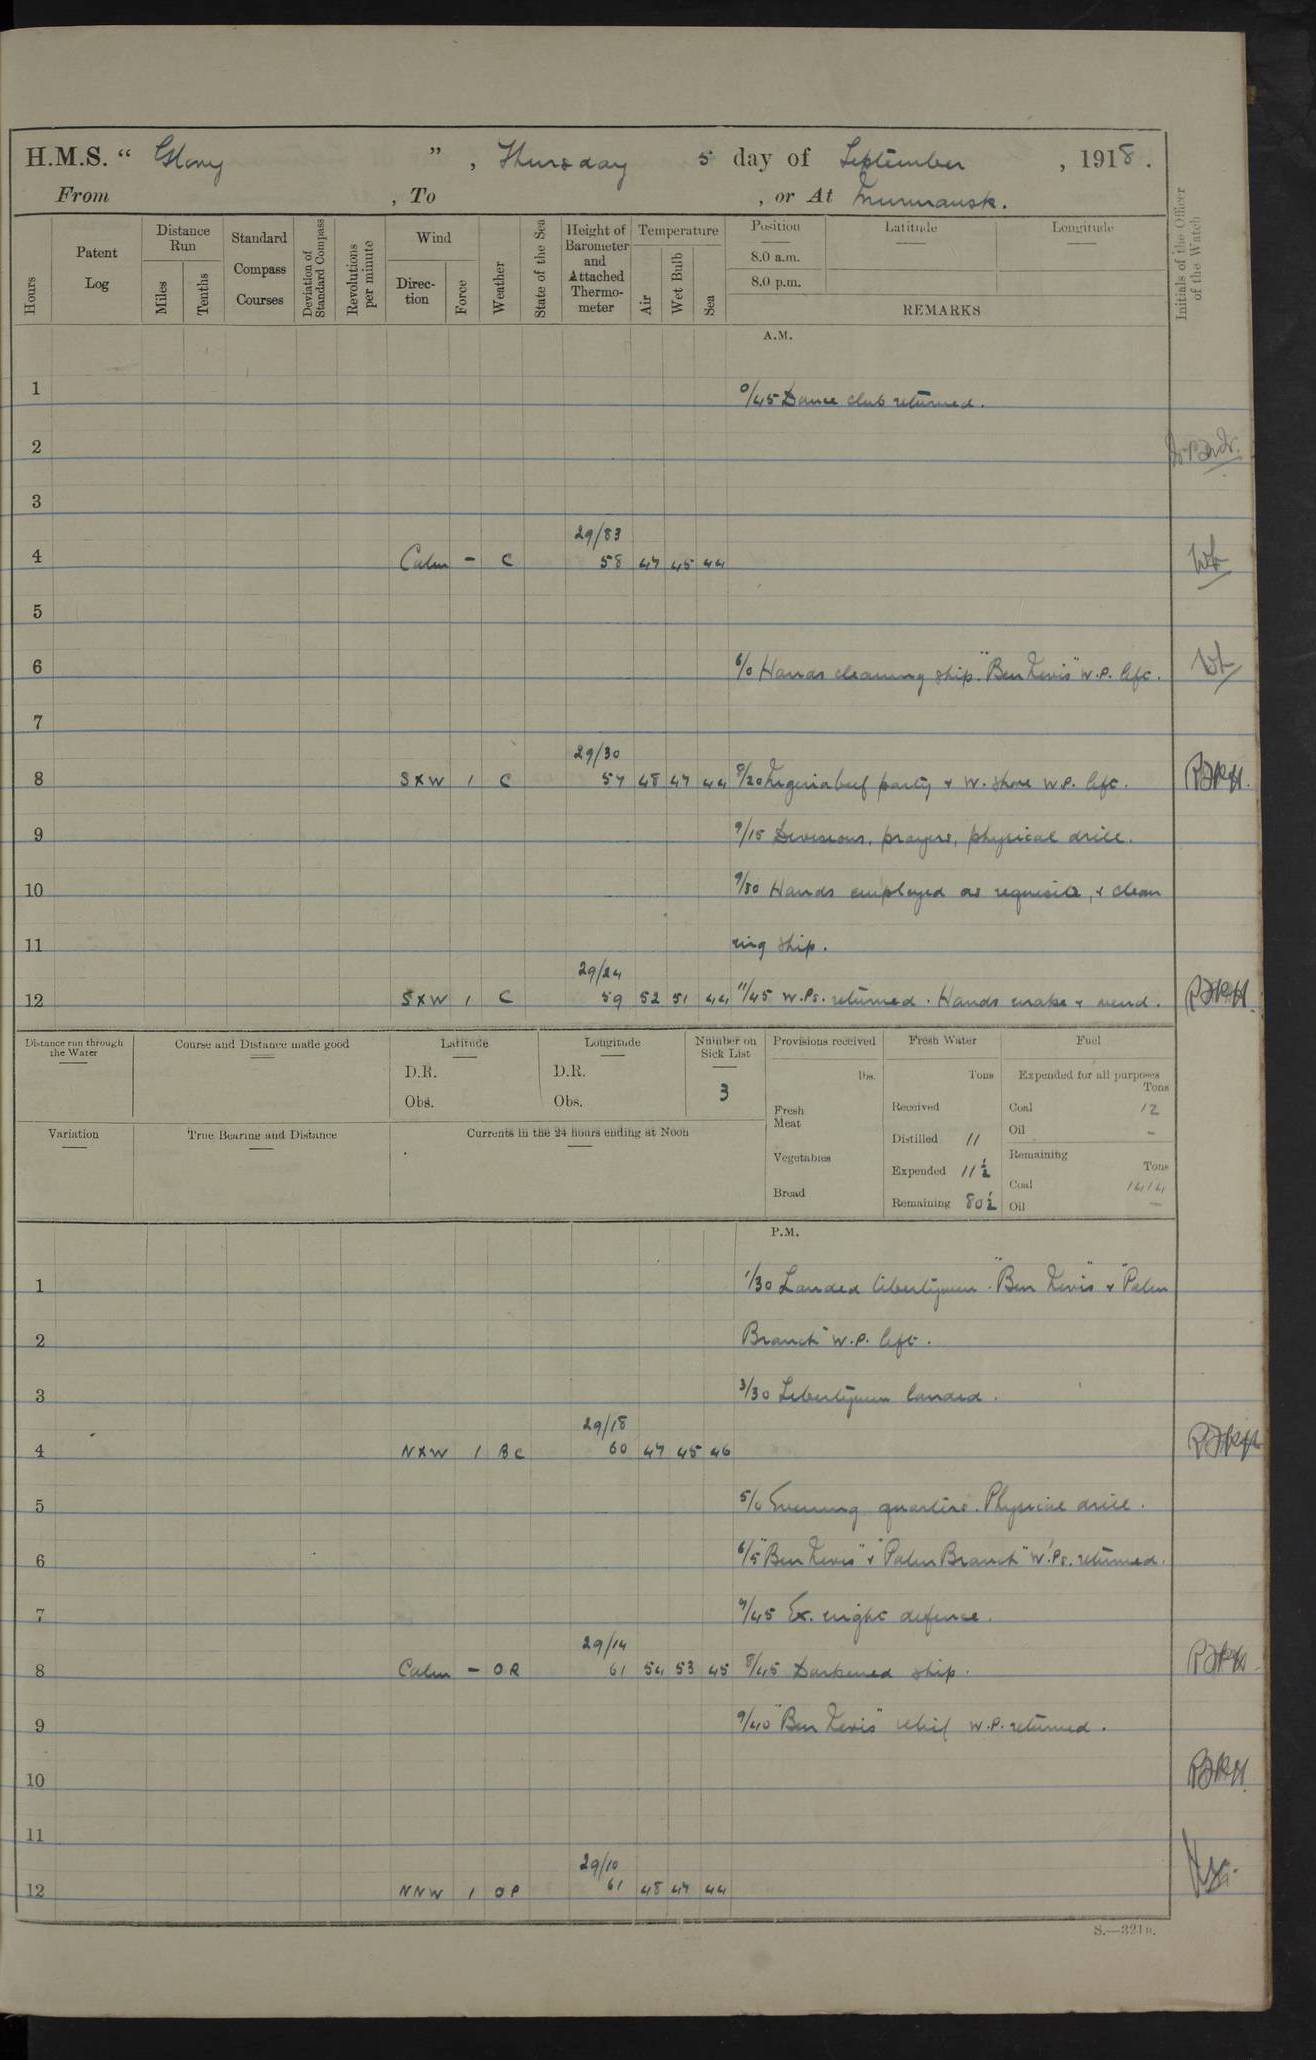 H.M.S. “ Glory ” , Thursday 5 day of September , 1918.
From , To , or At Murmansk.
Hours
Patent Log
Distance Run
Miles
Tenths
Standard Compass Courses
Deviation of Standard Compass
Revolutions per minute
Wind
Direction
Force
Weather
State of the Sea
Height of Barometer and Attached Thermometer
Temperature
Air
Wet Bulb
Sea
Position
8.0 a.m.
8.0 p.m.
Latitude
Longitude
REMARKS
Initials of the Officer of the Watch
A.M.
1 0/45 Dance club returned.
2
3
29/83
4 Calm - C 58 47 45 44
5
6 6/0 Hands cleaning ship. "Ben Nevis" W.P. left.
7
29/30
8 SXW 1 C 57 48 47 44 8/20 beef party & W. shore W.P. left.
9 9/15 Divisions, prayers, physical drill.
10 9/30 Hands employed as requisite, & clean
11 ing ship.
29/24
12 SXW 1 C 59 52 51 44 11/45 W.Ps. returned. Hands make & mend.
Distance run through the Water
Course and Distance made good
Latitude
D.R.
Obs.
Longitude
D.R.
Obs.
Number on Sick List
3
Provisions received
lbs.
Fresh Meat
Vegetables
Bread
Fresh Water
Tons
Received
Distilled 11
Expended 11½
Remaining 80½
Fuel
Expended for all purposes
Tons
Coal 12
Oil -
Remaining
Tons
Coal 1414
Oil -
Variation
True Bearing and Distance
Currents in the 24 hours ending at Noon
P.M.
1 1/30 Landed libertymen. "Ben Nevis" & "Palm
2 Branch" W.P. left.
3 3/30 Libertymen landed.
29/18
4 NXW 1 BC 60 47 45 46
5 5/0 Evening quarters. Physical drill.
6 6/5 "Ben Nevis" & "Palm Branch" W.Ps. returned.
7 7/45 Ex. night defence.
29/14
8 Calm - OR 61 54 53 45 8/45 Darkened ship.
9 9/40 "Ben Nevis" relief W.P. returned.
10
11
29/10
12 NNW 1 OP 61 48 47 44
S.—321B.